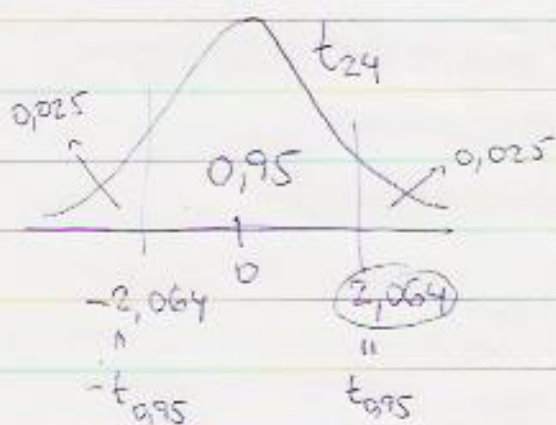 t24
0,025
0,95
0,025
0
-2,064
2,064
"
"
-t0,95
t0,95